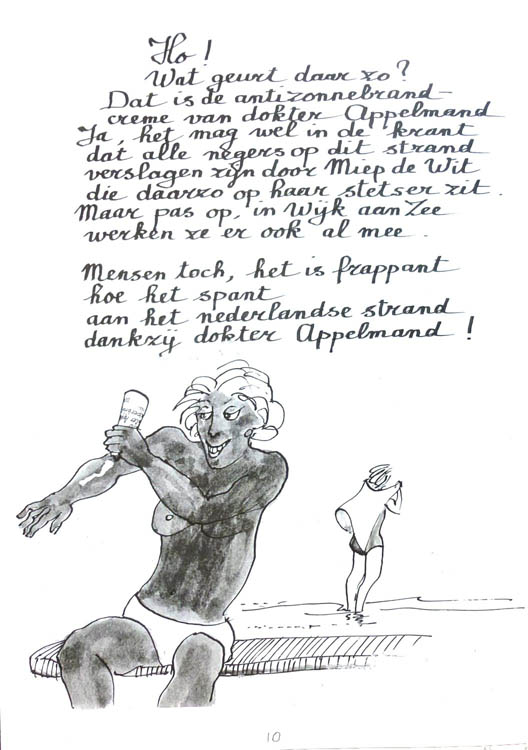 Ho!
Wat geurt daar zo?
Dat is de antizonnebrand-
creme van dokter Appelmand
Ja, het mag wel in de krant
dat alle negers op dit strand
verslagen zijn door Miep de Wit
die daarzo op haar stetser zit.
Maar pas op, in Wijk aan Zee
werken ze er ook al mee.
Mensen toch, het is frappant
hoe het spant
aan het nederlandse strand
dankzij dokter Appelmand!
10